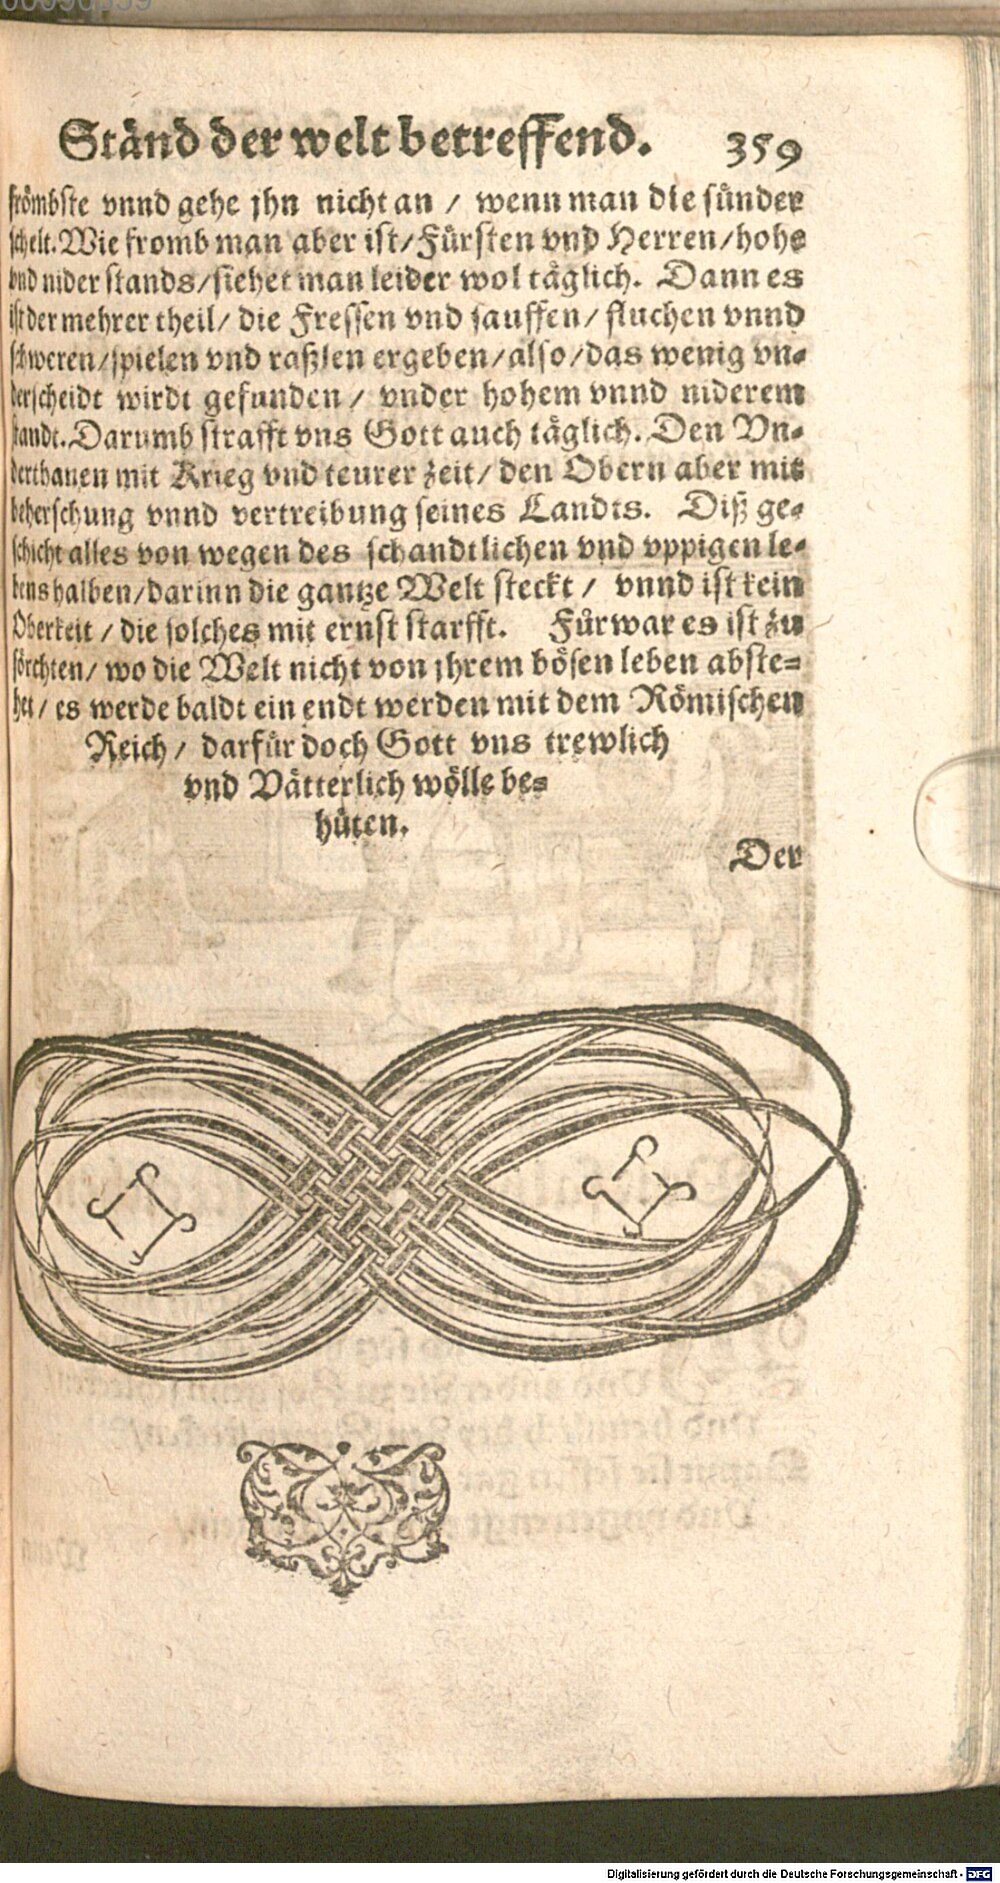 Ständ der welt betreffend. 359
frömbste vnnd gehe jhn nicht an / wenn man die sünder
schelt. Wie fromb man aber ist / Fürsten vnd Herren / hohs
vnd nider stands / siehet man leider wol täglich. Dann es
ist der mehrer theil / die Fressen vnd sauffen / fluchen vnnd
schweren / spielen vnd raßlen ergeben / also / das wenig vn-
derscheidt wirdt gefunden / vnder hohem vnnd niderem
standt. Darumb strafft vns Gott auch täglich. Den Vn-
derthanen mit Krieg vnd teurer zeit / den Obern aber mit
beherschung vnnd vertreibung seines Landts. Diß ge-
schicht alles von wegen des schandtlichen vnd vppigen le-
bens halben / darinn die gantze Welt steckt / vnnd ist kein
Oberkeit / die solches mit ernst starfft. Fürwar es ist zu
förchten / wo die Welt nicht von jhrem bösen leben abste-
het / es werde baldt ein endt werden mit dem Römischen
Reich / darfür doch Gott vns trewlich
vnd Vätterlich wölle be-
hüten.
Der
Digitalisierung gefördert durch die Deutsche Forschungsgemeinschaft - DFG